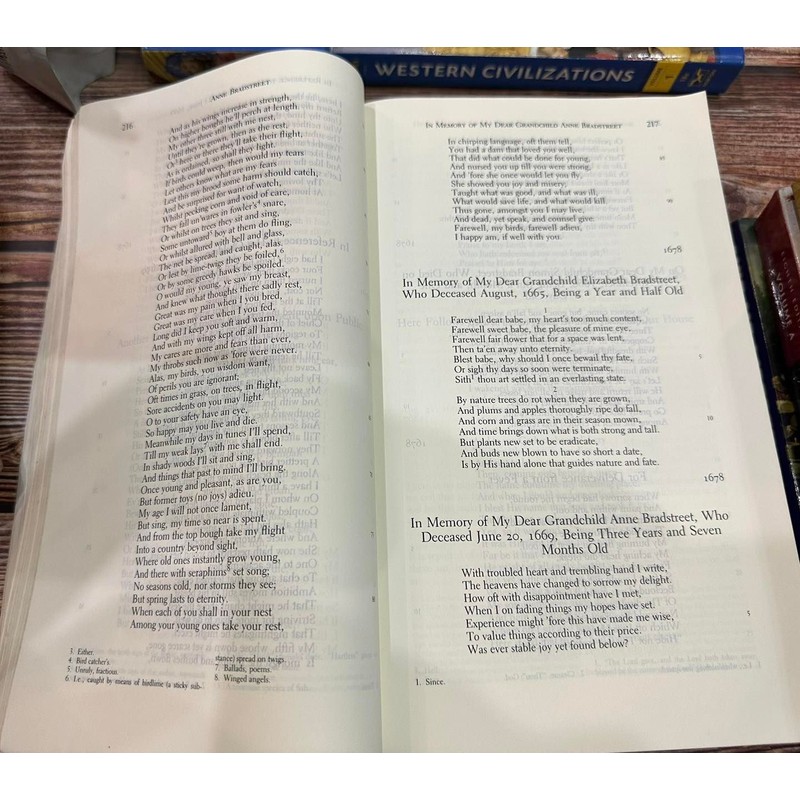 WESTERN CIVILIZATIONS
216
ANNE BRADSTREET
And as his wings increase in strength,
On higher boughs he'll perch at length.
My other three still with me nest,
Until they're grown, then as the rest,
Or here or there they'll take their flight,
As is ordained, so shall they light.
If birds could weep, then would my tears
Let others know what are my fears
Lest this my brood some harm should catch,
And be surprised for want of watch,
Whilst pecking corn and void of care,
They fall un'wares in fowler's⁴ snare,
Or whilst on trees they sit and sing,
Some untoward⁵ boy at them do fling,
Or whilst allured with bell and glass,
The net be spread, and caught, alas.
Or lest by lime-twigs they be foiled,⁶
Or by some greedy hawks be spoiled.
O would my young, ye saw my breast,
And knew what thoughts there sadly rest,
Great was my pain when I you bred,
Great was my care when I you fed,
Long did I keep you soft and warm,
And with my wings kept off all harm,
My cares are more and fears than ever,
My throbs such now as 'fore were never.
Alas, my birds, you wisdom want,
Of perils you are ignorant,
Oft times in grass, on trees, in flight,
Sore accidents on you may light.
O to your safety have an eye,
So happy may you live and die.
Meanwhile my days in tunes I'll spend,
Till my weak lays⁷ with me shall end.
In shady woods I'll sit and sing,
And things that past to mind I'll bring.
Once young and pleasant, as are you,
But former toys (no joys) adieu.
My age I will not once lament,
But sing, my time so near is spent.
And from the top bough take my flight
Into a country beyond sight,
Where old ones instantly grow young,
And there with seraphims⁸ set song;
No seasons cold, nor storms they see;
But spring lasts to eternity.
When each of you shall in your nest
Among your young ones take your rest,
3. Either.
4. Bird catcher's.
5. Unruly, fractious.
6. I.e., caught by means of birdlime (a sticky sub-
stance) spread on twigs.
7. Ballads, poems.
8. Winged angels.
IN MEMORY OF MY DEAR GRANDCHILD ANNE BRADSTREET
217
In chirping language, oft them tell,
You had a dam that loved you well,
That did what could be done for young,
And nursed you up till you were strong,
And 'fore she once would let you fly,
She showed you joy and misery;
Taught what was good, and what was ill,
What would save life, and what would kill.
Thus gone, amongst you I may live,
And dead, yet speak, and counsel give:
Farewell, my birds, farewell adieu,
I happy am, if well with you.
1678
In Memory of My Dear Grandchild Elizabeth Bradstreet,
Who Deceased August, 1665, Being a Year and Half Old
1
Farewell dear babe, my heart's too much content,
Farewell sweet babe, the pleasure of mine eye,
Farewell fair flower that for a space was lent,
Then ta'en away unto eternity.
Blest babe, why should I once bewail thy fate, 5
Or sigh thy days so soon were terminate,
Sith¹ thou art settled in an everlasting state.
2
By nature trees do rot when they are grown,
And plums and apples thoroughly ripe do fall,
And corn and grass are in their season mown, 10
And time brings down what is both strong and tall.
But plants new set to be eradicate,
And buds new blown to have so short a date,
Is by His hand alone that guides nature and fate.
1678
In Memory of My Dear Grandchild Anne Bradstreet, Who
Deceased June 20, 1669, Being Three Years and Seven
Months Old
With troubled heart and trembling hand I write,
The heavens have changed to sorrow my delight.
How oft with disappointment have I met,
When I on fading things my hopes have set.
Experience might 'fore this have made me wise, 5
To value things according to their price.
Was ever stable joy yet found below?
1. Since.